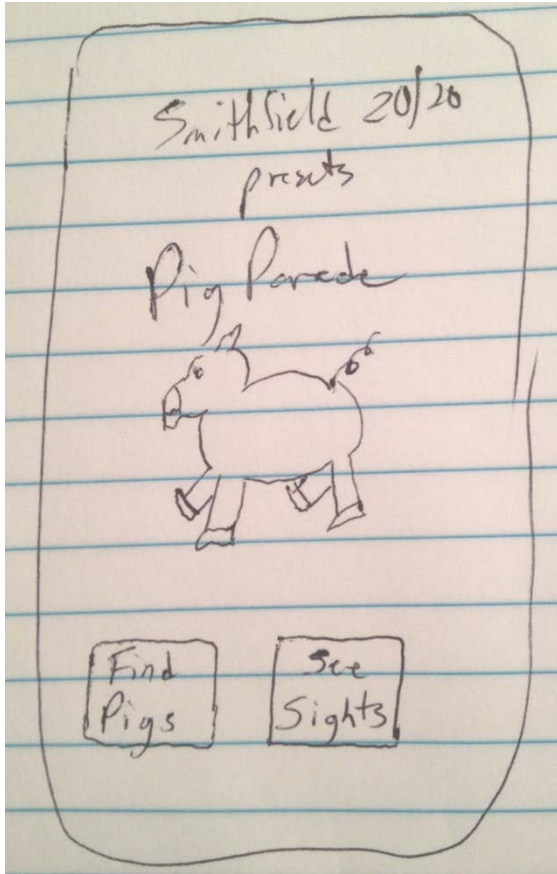 Smithfield 20/20
presents
Pig Parade
Find
Pigs
See
Sights